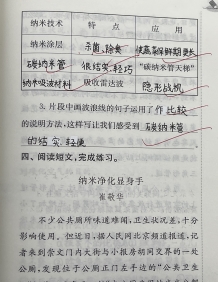 纳米技术 特点 应用
纳米涂层 杀菌、除臭 使蔬菜保鲜期更长
碳纳米管 很结实、轻巧 “碳纳米管天梯”
纳米吸波材料 吸收雷达波 隐形战机
3. 片段中画波浪线的句子运用了 作比较
的说明方法,这样写让我们感受到 碳纳米管
的结实、轻便
四、阅读短文,完成练习。
纳米净化显身手
崔敬华
不少公共厕所味道难闻,卫生状况差,十分
影响使用。但近日,据人民网北京频道报道,记
者来到崇文门内大街与小报房胡同交界的一处
公厕,发现位于公厕正门左手边的“公共卫生